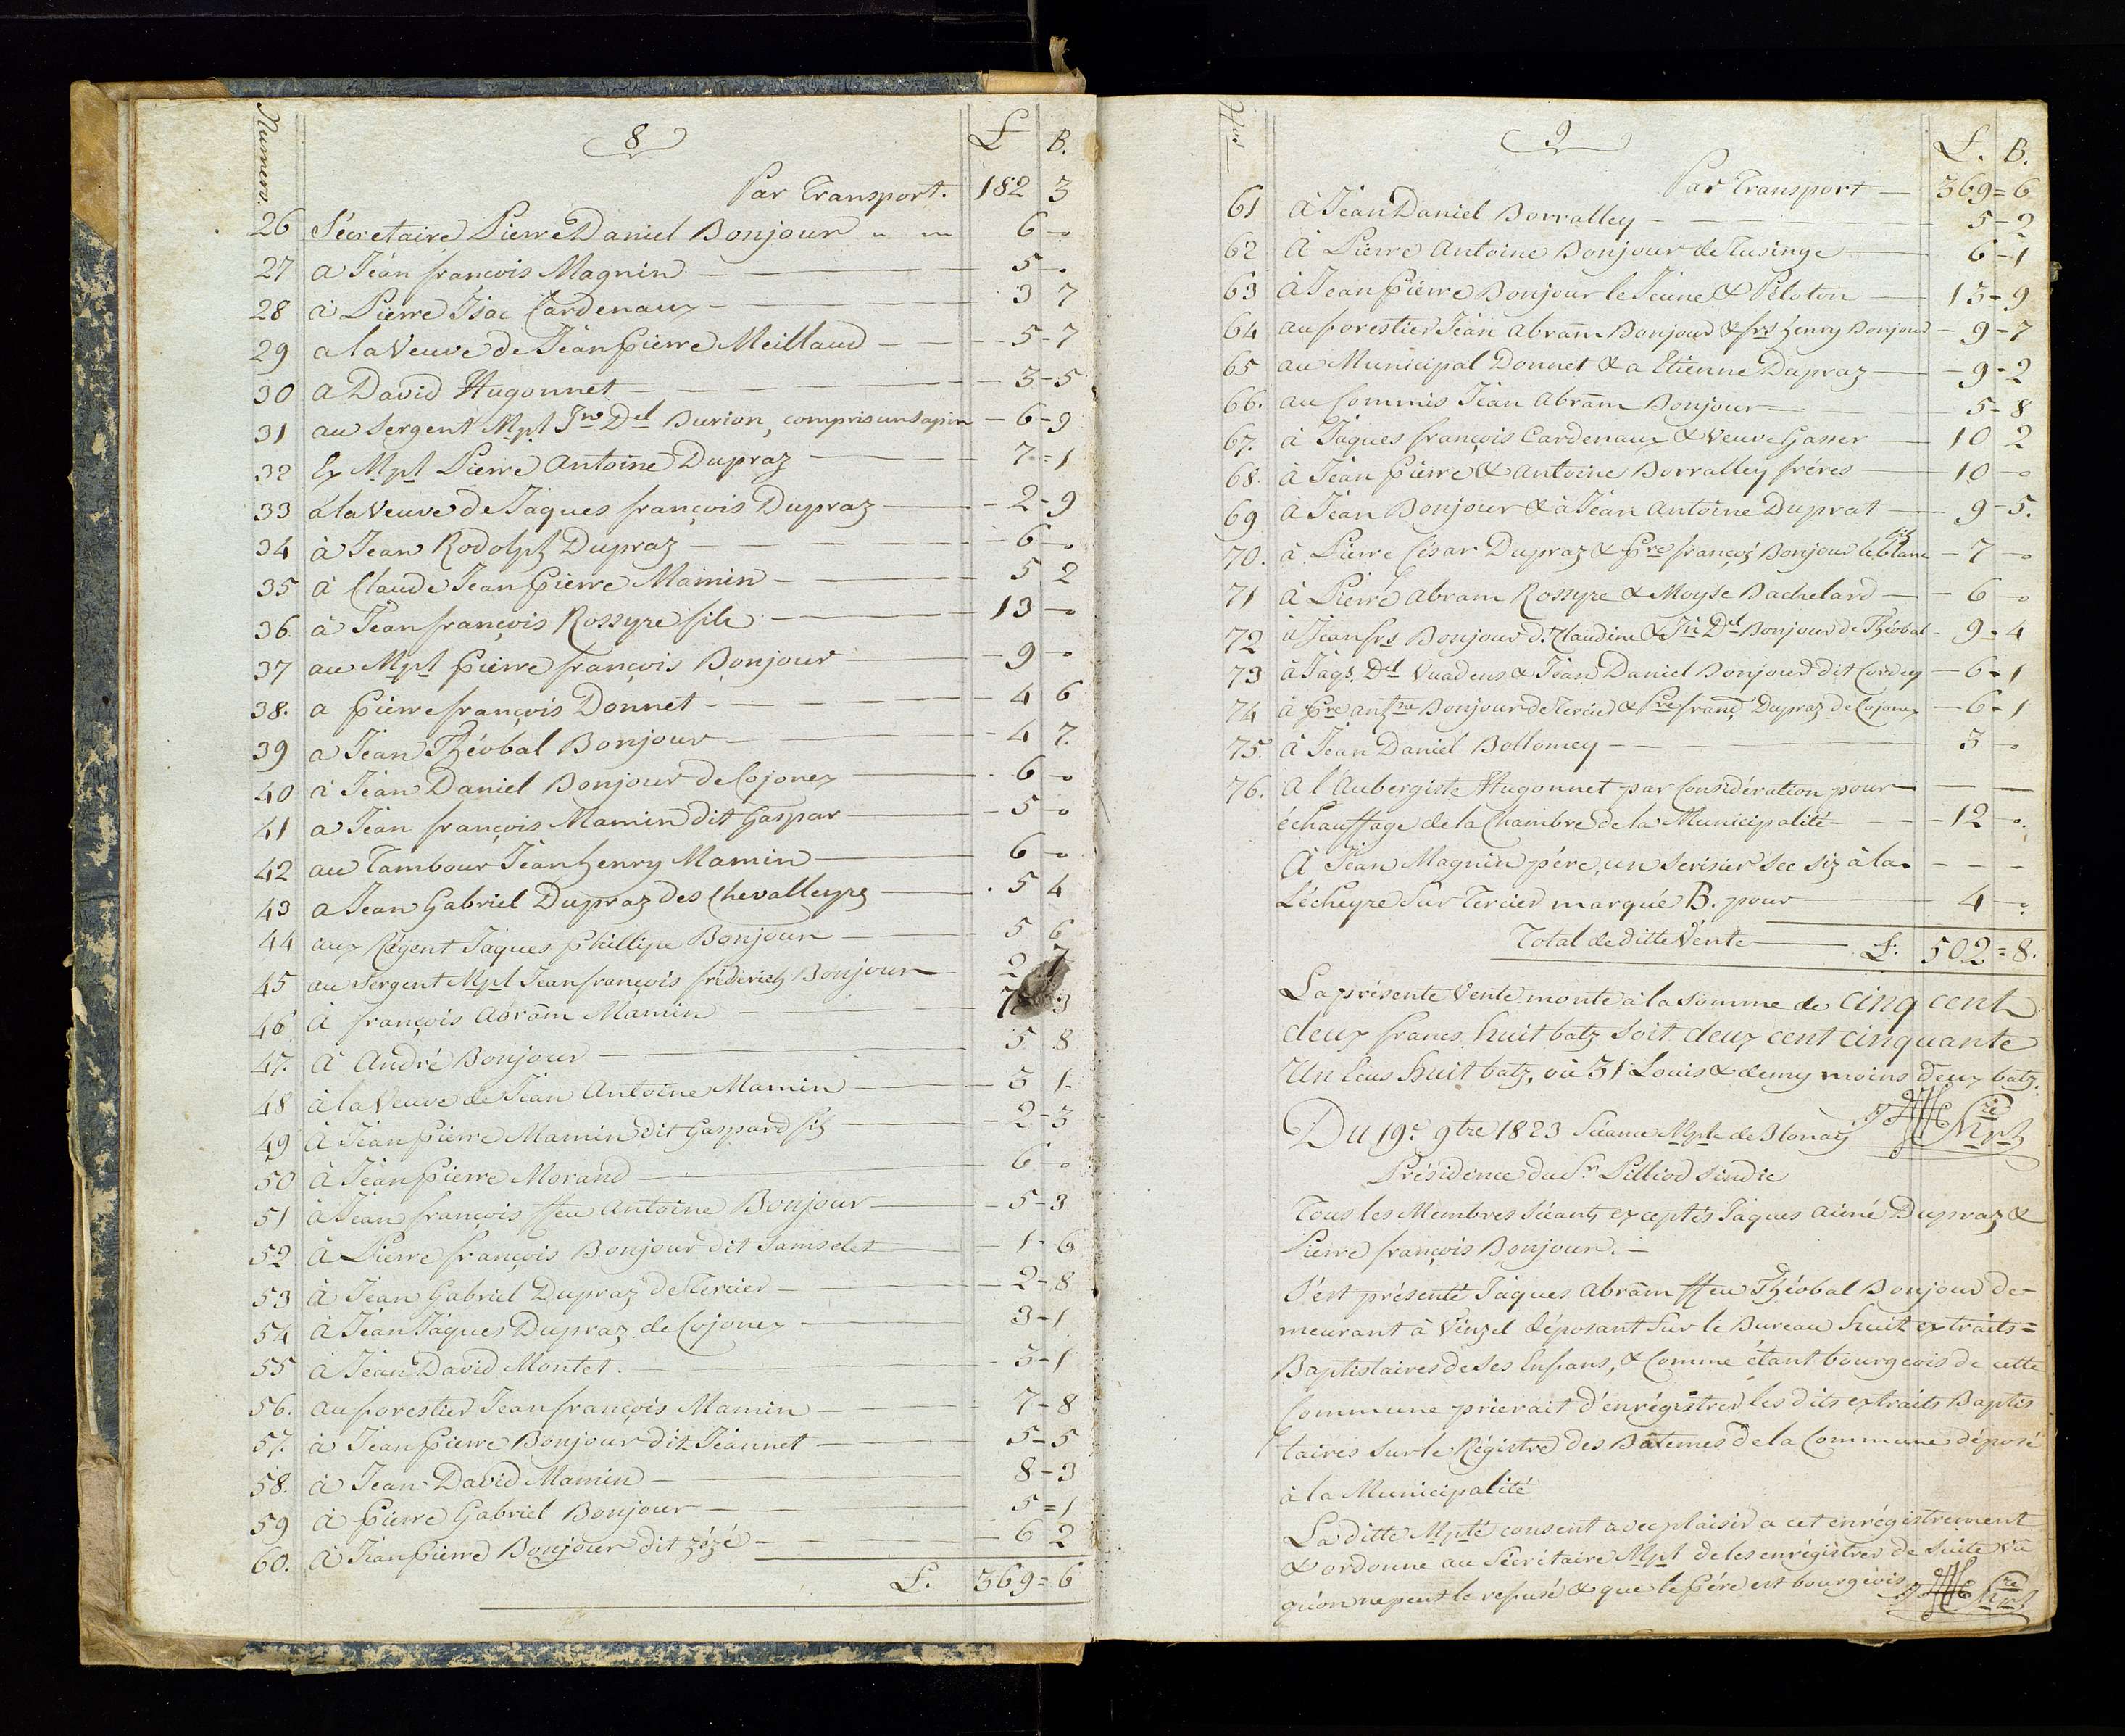 Numeros.
8
£ B.
Par Transport. 182 3
26 Sécretaire Pierre Daniel Bonjour " " 6 - 0
27 a Jéan françois Magnin — 5 - 0
28 à Pierre Isac Cardenaux — 3 7
29 a la Veuve de Jéan Pierre Meillaud — 5 - 7
30 a David Hugonnet — 3 - 5
31 au Sergent Mpl Jn Del Burion, compris un sapin — 6 - 9
32 Ex Mpl Pierre Antoine Dupraz — 7 = 1
33 à la Veuve de Jaques françois Dupraz — 2 - 9
34 à Jean Rodolph Dupraz — 6 - 0
35 à Claude Jean Pierre Mamin — 5 2
36. à Jean françois Rossyre fils — 13 - 0
37 au Mpl Pierre françois Bonjour — 9 - 0
38. a Pierre françois Donnet — 4 6
39 a Jéan Théobal Bonjour — 4 7.
40 à Jéan Daniel Bonjour de Cojonex — 6 - 0
41 a Jéan françois Mamin dit Gaspar — 5 - 0
42 au Tambour Jéan henry Mamin — 6 - 0
43 a Jean Gabriel Dupraz des Chevalleyres — 5 4
44 aux Régent Jaques Phillipe Bonjour — 5 6
45 au Sergent Mpl Jean françois fréderich Bonjour — 2 7
46 à françois Abram Mamin — 7 3
47. à André Bonjour — 5 8
48 à la Veuve de Jéan Antoine Mamin — 3 1
49 à Jéan Pierre Mamin dit Gaspard fils — 2 - 3
50 à Jéan Pierre Morand — 6 - 0
51 à Jéan françois ffeu Antoine Bonjour — 5 - 3
52 à Pierre françois Bonjour dit Samselet — 1 - 6
53 à Jéan Gabriel Dupraz de Tercier — 2 - 8
54 à Jéan Jaques Dupraz de Cojonex — 3 - 1
55 à Jéan David Montet. — 3 - 1
56. au forestier Jéan françois Mamin — 7 - 8
57. à Jéan Pierre Bonjour dit Jéannet — 5 - 5
58. à Jéan David Mamin — 8 - 3
59 à Pierre Gabriel Bonjour — 5 = 1
60. à Jéan Pierre Bonjour dit zézé — 6 2
£. 369 = 6
Nos
9
£. B.
Par Transport — 369 = 6
61 à Jéan Daniel Borralley — 5 - 2
62 à Pierre Antoine Bonjour de Tusinge — 6 - 1
63 à Jean Pierre Bonjour le Jeune & Péloton — 13 - 9
64 au forestier Jéan Abram Bonjour & frs henry Bonjour — 9 - 7
65 au Municipal Donnet & a Etienne Dupraz — 9 - 2
66. au Commis Jéan Abram Bonjour — 5 - 8
67. à Jaques françois Cardenaux & Veuve Gasser — 10 2
68. à Jéan Pierre & Antoine Borralley fréres — 10 - 0
69 à Jéan Bonjour & à Jéan Antoine Duprat — 9 - 5.
70. à Pierre César Dupraz & Pre françs Bonjour le blanc fils — 7 - 0
71 à Pierre Abram Rossyre & Moyse Bachelard — 6 - 0
72 à Jean frs Bonjour d. Claudine & Jn Del Bonjour de Théobal — 9 - 4
73 à Jaqs. Del Vuadens & Jéan Daniel Bonjour dit Cordey — 6 - 1
74 à Pre Antne Bonjour de Tercier & Pre franç Dupraz de Cojonex — 6 - 1
75. à Jean Daniel Bollomey — 3 - 0
76. A l'Aubergiste Hugonnet par Considération pour — — —
échauffage de la Chambre de la Municipalité — 12 - 0.
à Jéan Magnin pére, un Serisier sec siz à la — — —
Lécheyre Sur Tercier marqué B. pour — 4 - 0
Total de ditte Vente — £. 502 = 8.
La présente Vente monte à la Somme de cinq cent
deux francs huit batz soit deux cent cinquante
Un Ecus huit batz, ou 31 Louis & demy moins deux batz.
Du 19e 9bre 1823 Séance Mple de Blonay
Présidence du Sr Pilliod Sindic
Tous les Membres Séants exceptés Jaques aimé Dupraz &
Pierre françois Bonjour. —
S'est présenté Jaques Abram ffeu Théobal Bonjour de-
meurant à Vinzel déposant Sur le Bureau huit extraits =
Baptistaires de Ses Enfans, & Comme étant bourgeois de cette
Commune prierait d'énrégistrer les dits extraits Baptis
taires Sur le Régistre des Batemes de la Commune déposé
à la Municipalité
La ditte Mplté consent avec plaisir a cet énrégistrement
& ordonne au Sécrétaire Mpl de les enrégistrer de Suite vû
qu'on ne peut le refusé & que le Pére est bourgeois